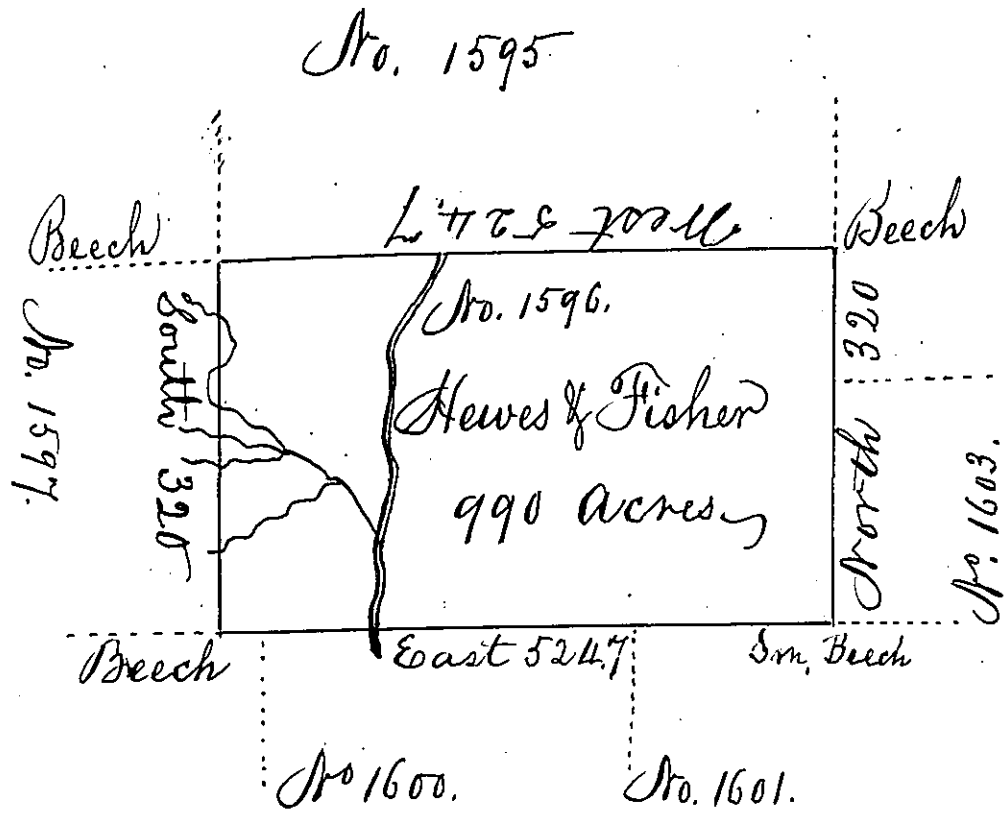 No. 1595
Beech
West 524.7
Beech
No. 1596.
320
South 320
No. 1597.
Hewes & Fisher
990 acres
North
No. 1603.
Beech
East 524.7
Sm. Beech
No 1600.
No. 1601.